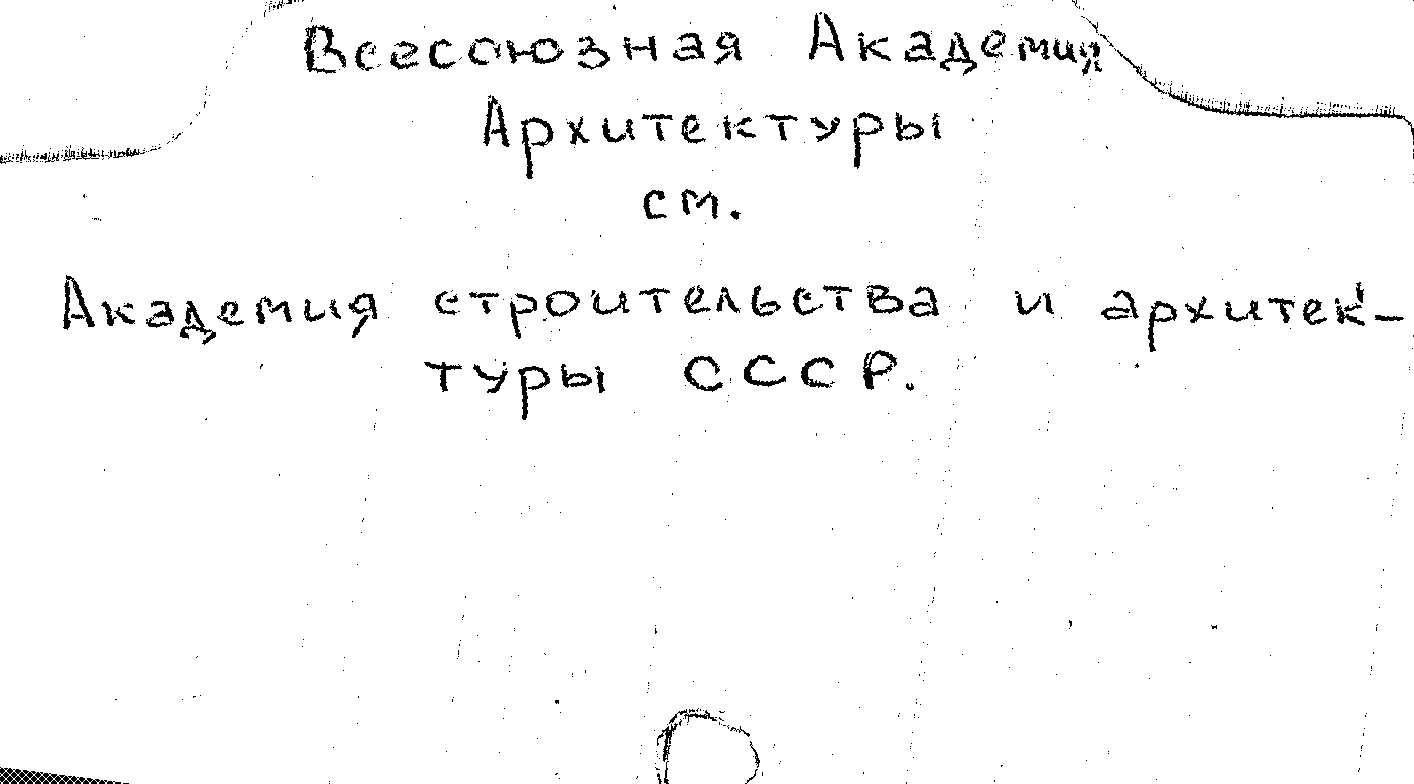 Всесоюзная Академия
Архитектуры
см.
Академия строительства и архитек-
туры СССР.